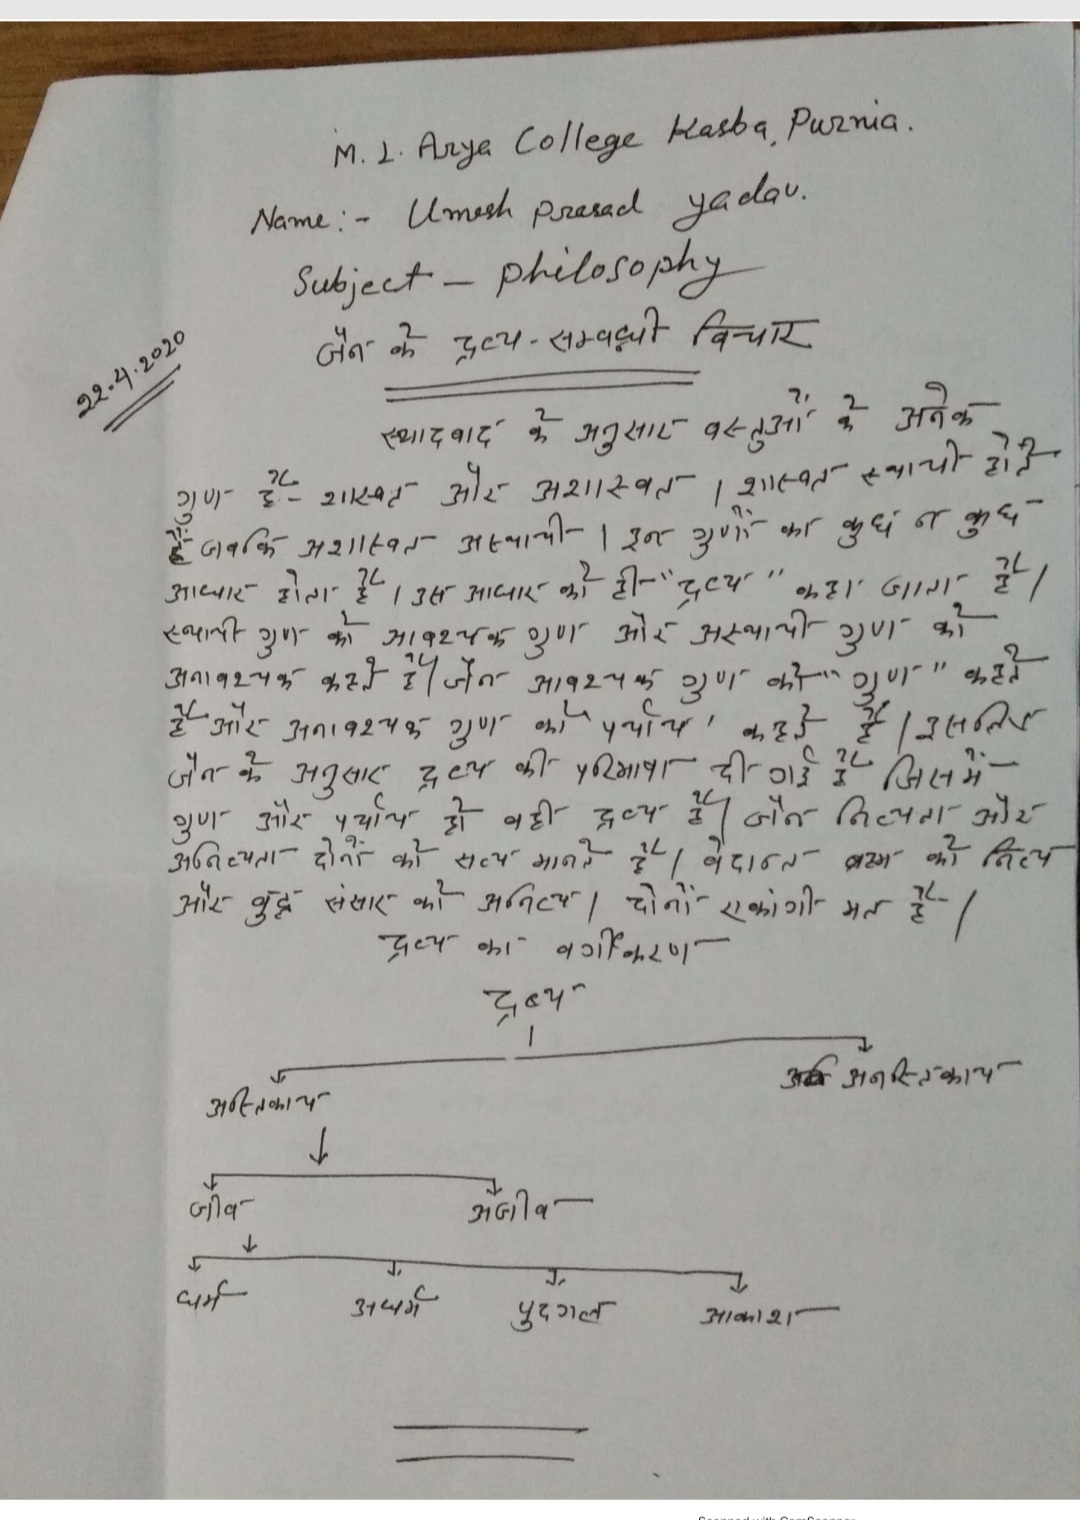 M. L. Arya College Kasba, Purnia.
Name:- Umesh Prasad yadav.
Subject - Philosophy
जैन के द्रव्य-सम्बन्धी विचार
22.4.2020
स्यादवाद के अनुसार वस्तुओं के अनेक
गुण हैं - शास्वत और अशास्वत । शास्वत स्थायी होते
हैं जबकि अशास्वत अस्थायी । इन गुणों का कुछ न कुछ
आधार होता है । इस आधार को ही "द्रव्य" कहा जाता है ।
स्थायी गुण को आवश्यक गुण और अस्थायी गुण को
अनावश्यक कहते हैं । जैन आवश्यक गुण को "गुण" कहते
हैं और अनावश्यक गुण को 'पर्याय' कहते हैं । इसलिए
जैन के अनुसार द्रव्य की परिभाषा दी गई है जिस में
गुण और पर्याय हो वही द्रव्य है । जैन नित्यता और
अनित्यता दोनों को सत्य मानते हैं । वेदान्त ब्रह्म को नित्य
और बुद्ध संसार को अनित्य । दोनों एकांगी मत है ।
द्रव्य का वर्गीकरण
द्रव्य
अस्तिकाय अनस्तिकाय
जीव अजीव
धर्म अधर्म पुदगल आकाश